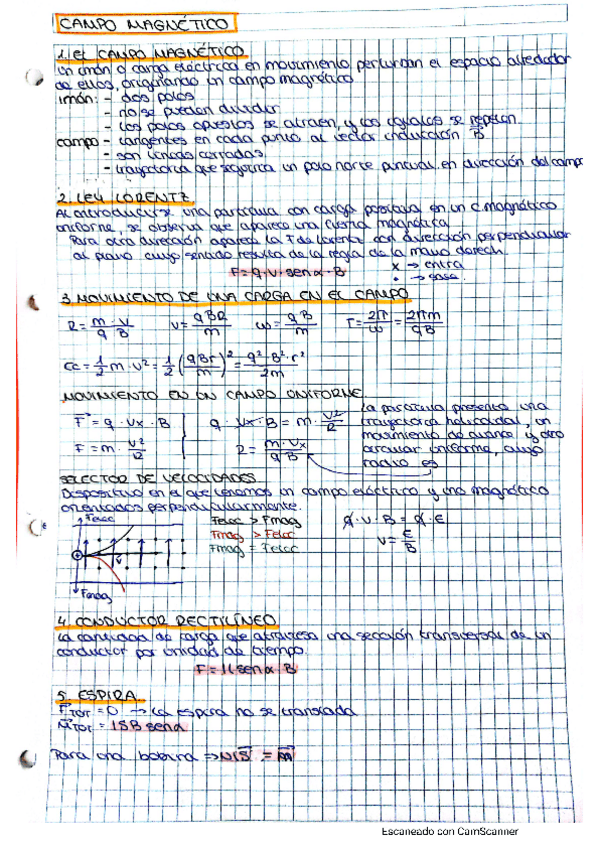 CAMPO MAGNÉTICO
1. EL CAMPO MAGNÉTICO
Un imán o carga eléctrica en movimiento perturban el espacio alrededor
de ellos, originando un campo magnético
imán: - dos polos
- no se pueden dividir
- los polos opuestos se atraen, y los iguales se repelen.
campo - tangentes en cada punto al vector inducción B⃗
- son líneas cerradas.
- trayectoria que seguiría un polo norte puntual en dirección del campo
2. LEY LORENTZ
Al introducirse una partícula con carga positiva en un C. magnético
uniforme, se observa que aparece una fuerza magnética
Para otra dirección aparece la F de Lorentz con dirección perpendicular
al plano cuyo sentido resulta de la regla de la mano derech.
x → entra
F = q · v · sen α · B
• → sale
3. MOVIMIENTO DE UNA CARGA EN EL CAMPO
R = m · v / q B v = qBR / m ω = q B / m T = 2π / ω = 2πm / qB
Ec = 1/2 m · v² = 1/2 (qBr / m)² = q² · B² · r² / 2m
MOVIMIENTO EN UN CAMPO UNIFORME
F⃗ = q · vx · B q · vx · B = m · v² / R
F = m · v² / R R = m · vx / q B
la partícula presenta una
trayectoria helicoidal, un
movimiento de avance y otro
circular uniforme, cuyo
radio es
SELECTOR DE VELOCIDADES
Dispositivo en el que tenemos un campo eléctrico y uno magnético
orientados perpendicularmente.
Felec
v
Fmag
Felec > Fmag
Fmag > Felec
Fmag = Felec
q · v · B = q · E
v = E / B
4. CONDUCTOR RECTILÍNEO
La cantidad de carga que atraviesa una sección transversal de un
conductor por unidad de tiempo.
F = I L sen α · B
5. ESPIRA
F⃗TOT = 0 → La espira no se traslada
M⃗TOT = I S B sen α
Para una bobina ⇒ N I S⃗ = m⃗
Escaneado con CamScanner